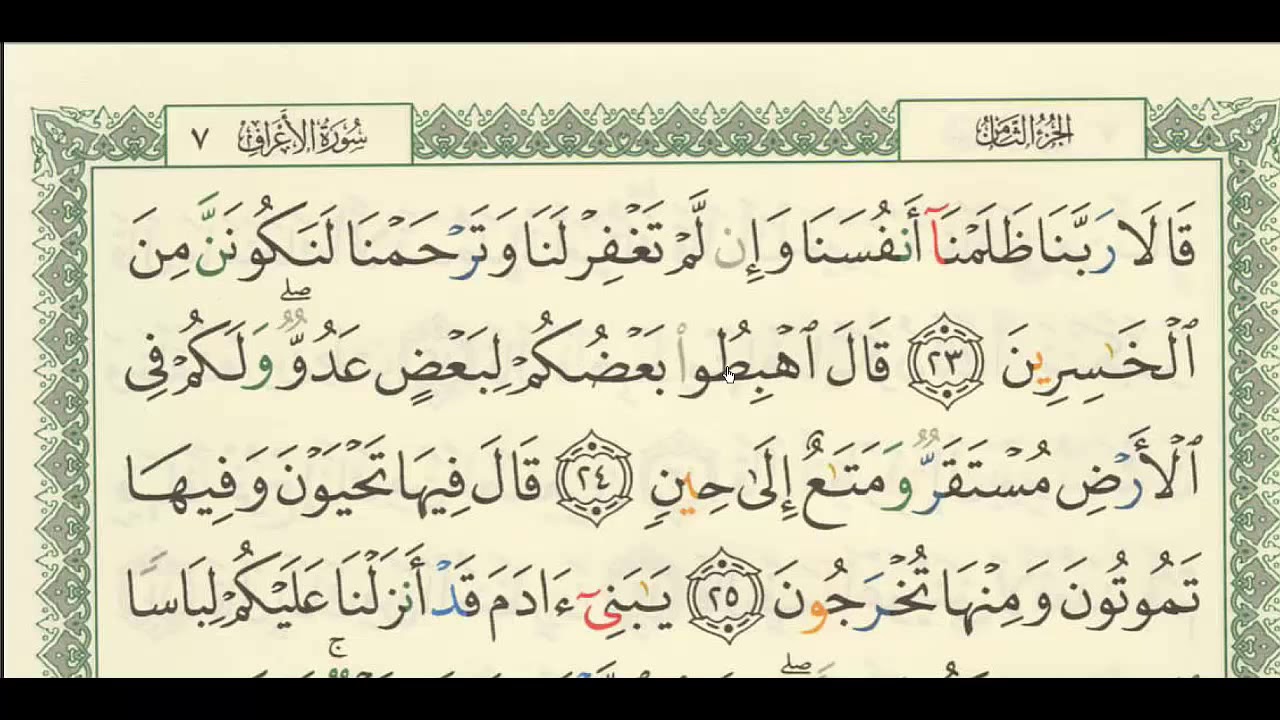 الجُزْءُ الثَّامِنُ
سُورَةُ الأَعْرَافِ ٧
قَالَا رَبَّنَا ظَلَمْنَآ أَنفُسَنَا وَإِن لَّمْ تَغْفِرْ لَنَا وَتَرْحَمْنَا لَنَكُونَنَّ مِنَ
ٱلْخَـٰسِرِينَ ٢٣ قَالَ ٱهْبِطُوا۟ بَعْضُكُمْ لِبَعْضٍ عَدُوٌّ ۖ وَلَكُمْ فِى
ٱلْأَرْضِ مُسْتَقَرٌّ وَمَتَـٰعٌ إِلَىٰ حِينٍ ٢٤ قَالَ فِيهَا تَحْيَوْنَ وَفِيهَا
تَمُوتُونَ وَمِنْهَا تُخْرَجُونَ ٢٥ يَـٰبَنِىٓ ءَادَمَ قَدْ أَنزَلْنَا عَلَيْكُمْ لِبَاسًا